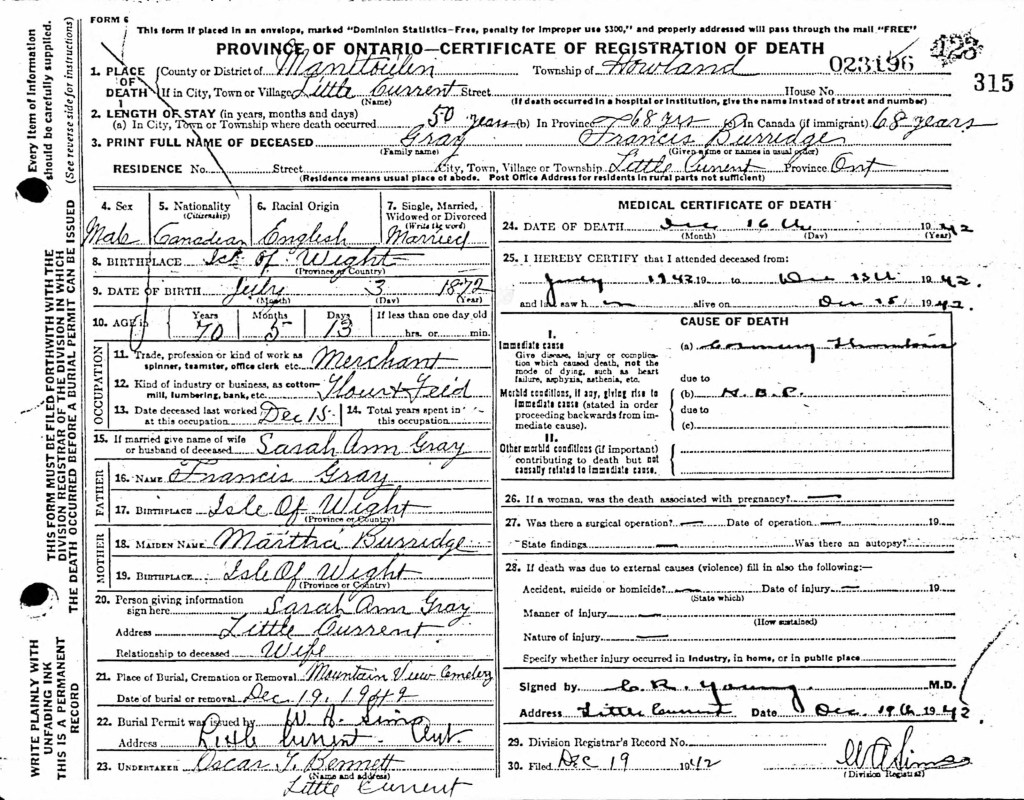 FORM 6
This form if placed in an envelope, marked "Dominion Statistics—Free, penalty for improper use $300," and properly addressed will pass through the mail "FREE"
PROVINCE OF ONTARIO—CERTIFICATE OF REGISTRATION OF DEATH
023196
315
1. PLACE OF DEATH
County or District of Manitoulin Township of Howland
If in City, Town or Village Little Current Street House No.
(Name) (If death occurred in a hospital or institution, give the name instead of street and number)
2. LENGTH OF STAY (in years, months and days)
(a) In City, Town or Township where death occurred 50 years (b) In Province 68 yrs In Canada (if immigrant) 68 years
3. PRINT FULL NAME OF DECEASED Gray Francis Burridge
(Family name) (Given name or names in usual order)
RESIDENCE No. Street City, Town, Village or Township Little Current Province Ont
(Residence means usual place of abode. Post Office Address for residents in rural parts not sufficient)
Every Item of Information should be carefully supplied.
(See reverse side for instructions)
THIS FORM MUST BE FILED FORTHWITH WITH THE DIVISION REGISTRAR OF THE DIVISION IN WHICH THE DEATH OCCURRED BEFORE A BURIAL PERMIT CAN BE ISSUED
WRITE PLAINLY WITH UNFADING INK
THIS IS A PERMANENT RECORD
4. Sex
Male
5. Nationality
(Citizenship)
Canadian
6. Racial Origin
English
7. Single, Married, Widowed or Divorced
(Write the word)
Married
8. BIRTHPLACE Isle Of Wight
(Province or Country)
9. DATE OF BIRTH July 3 1872
(Month) (Day) (Year)
10. AGE is Years 70 Months 5 Days 13 If less than one day old
hrs. or min.
OCCUPATION
11. Trade, profession or kind of work as spinner, teamster, office clerk etc. Merchant
12. Kind of industry or business, as cotton-mill, lumbering, bank, etc. Flour & Feed
13. Date deceased last worked at this occupation Dec 15
14. Total years spent in this occupation
15. If married give name of wife or husband of deceased Sarah Ann Gray
FATHER
16. NAME Francis Gray
17. BIRTHPLACE Isle Of Wight
(Province or Country)
MOTHER
18. MAIDEN NAME Martha Burridge
19. BIRTHPLACE Isle Of Wight
(Province or Country)
20. Person giving information sign here Sarah Ann Gray
Address Little Current
Relationship to deceased Wife
21. Place of Burial, Cremation or Removal Mountain View Cemetery
Date of burial or removal Dec. 19. 1942
22. Burial Permit was issued by W. A. Sims
Address Little Current Ont.
23. UNDERTAKER Oscar T. Bennett
(Name and address)
Little Current
MEDICAL CERTIFICATE OF DEATH
24. DATE OF DEATH Dec 16th 1942
(Month) (Day) (Year)
25. I HEREBY CERTIFY that I attended deceased from:
1942 19 to Dec 15th 1942
and last saw h im alive on Dec 15 1942
CAUSE OF DEATH
I.
Immediate cause
Give disease, injury or complication which caused death, not the mode of dying, such as heart failure, asphyxia, asthenia, etc.
(a) Coronary Thrombosis
due to
Morbid conditions, if any, giving rise to immediate cause (stated in order proceeding backwards from immediate cause).
(b) H. B. P.
due to
(c)
II.
Other morbid conditions (if important) contributing to death but not causally related to immediate cause.
26. If a woman, was the death associated with pregnancy? —
27. Was there a surgical operation? — Date of operation — 19
State findings — Was there an autopsy? —
28. If death was due to external causes (violence) fill in also the following:—
Accident, suicide or homicide? — Date of injury — 19
(State which)
Manner of injury —
(How sustained)
Nature of injury —
Specify whether injury occurred in industry, in home, or in public place
Signed by C. R. Young M.D.
Address Little Current Date Dec. 19th 1942.
29. Division Registrar's Record No.
30. Filed Dec 19 1942 W A Sims
(Division Registrar)